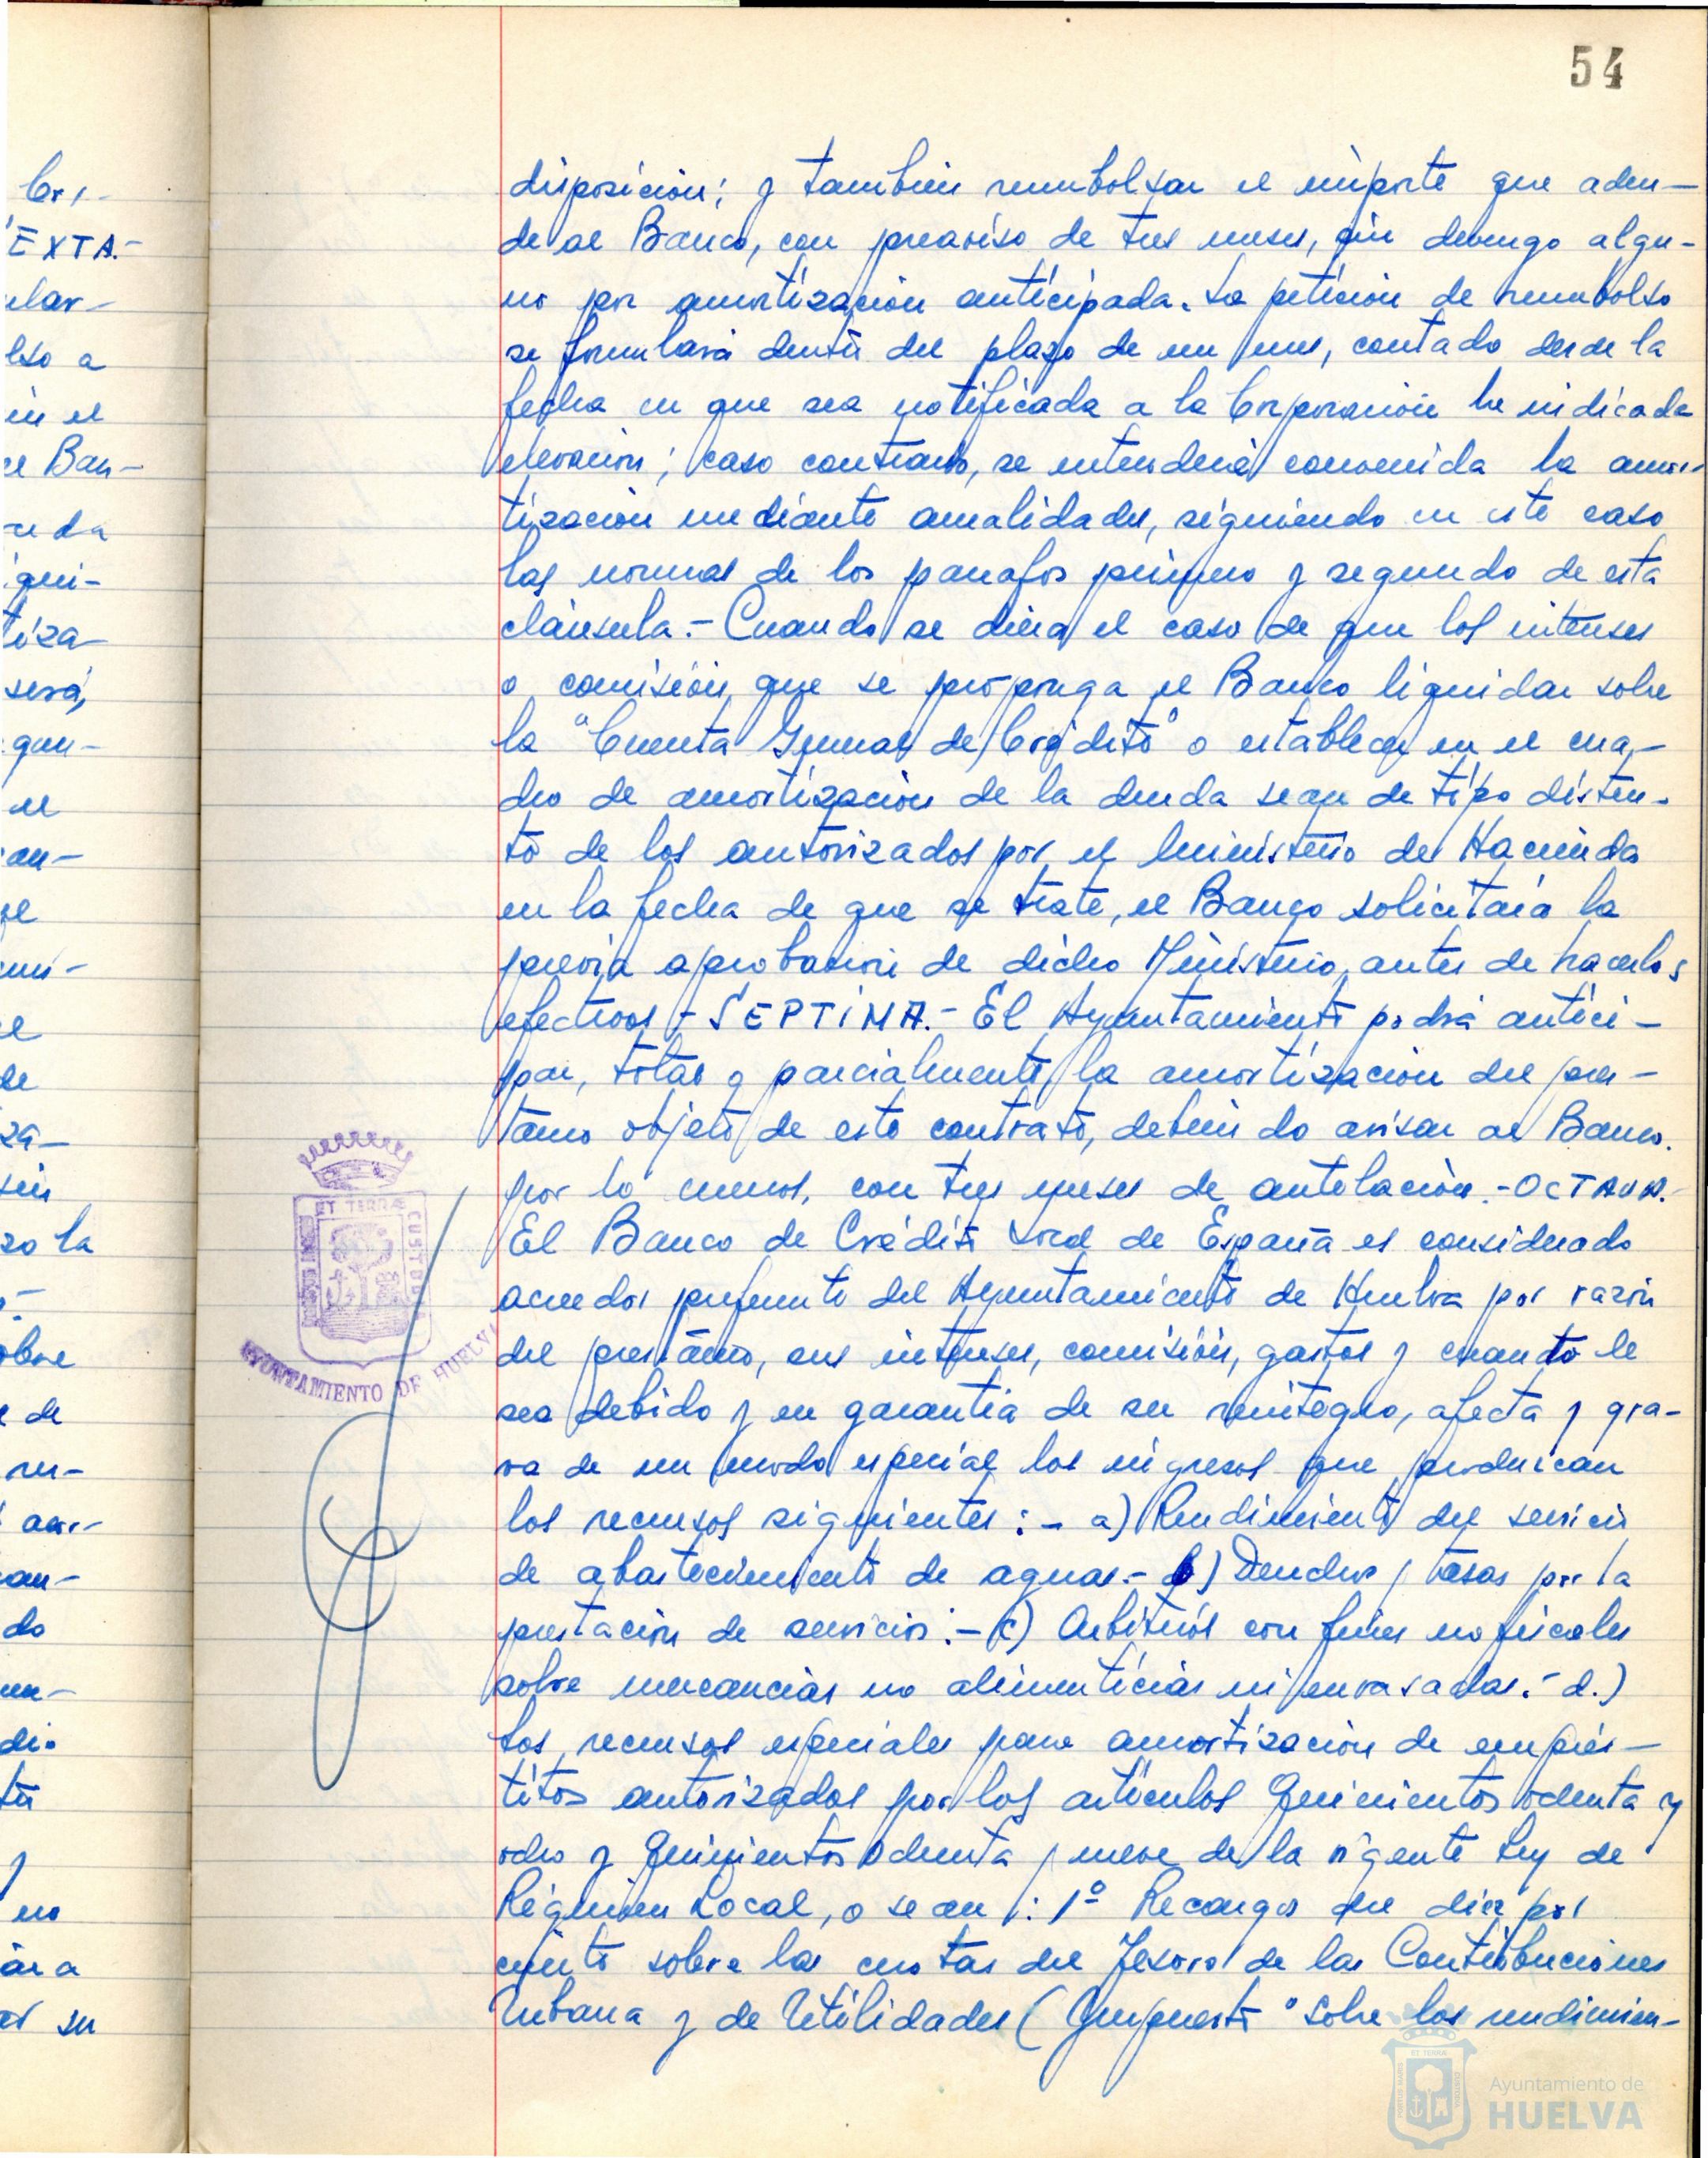 54
disposición; y tambien reembolsar el importe que aden-
de al Banco, con preaviso de tres meses, sin devengo algu-
no por amortización anticipada. La petición de reembolso
se formulará dentro del plazo de un mes, contado desde la
fecha en que sea notificada a la Corporación la indicada
elevación; caso contrario, se entenderá convenida la amor-
tización mediante anualidades, siguiendo en este caso
las normas de los parrafos primero y segundo de esta
cláusula.- Cuando se diera el caso de que los intereses
o comisión que se proponga el Banco liquidar sobre
la "Cuenta General de Crédito" o establecer en el cua-
dro de amortización de la deuda sean de tipo distin-
to de los autorizados por el Ministerio de Hacienda
en la fecha de que se trate, el Banco solicitará la
previa aprobación de dicho Ministerio, antes de hacerlos
efectivos.- SEPTIMA.- El Ayuntamiento podrá antici-
par, total o parcialmente, la amortización del prés-
tamo objeto de este contrato, debiendo avisar al Banco.
por lo menos, con tres meses de antelación.- OCTAVA.-
El Banco de Crédito Local de España es considerado
acreedor preferente del Ayuntamiento de Huelva por razón
del préstamo, sus intereses, comisión, gastos y cuanto le
sea debido y en garantía de su reintegro, afecta y gra-
va de un modo especial los ingresos que produzcan
los recursos siguientes:- a) Rendimiento del servicio
de abastecimiento de aguas.- b) Derechos y tasas por la
prestación de servicios:- c) Arbitrios con fines no fiscales
sobre mercancías no alimenticias ni envasadas.- d.)
Los recursos especiales para amortización de emprés-
titos autorizados por los artículos quinientos ochenta y
ocho y quinientos ochenta y nueve de la vigente Ley de
Régimen Local, o sean: 1º Recargo del diez por
ciento sobre las cuotas del Tesoro de las Contribuciones
Urbana y de Utilidades (Impuesto "sobre los rendimien-
Cor-
EXTA.-
ular-
lso a
in el
el Ban-
euda
qui-
tiza
será,
gan-
el
an-
de
za-
sin
zo la
obre
e de
an-
do
di-
y
no
ara
su
ET TERRÆ CUSTODIA
AYUNTAMIENTO DE HUELVA
Ayuntamiento de
HUELVA